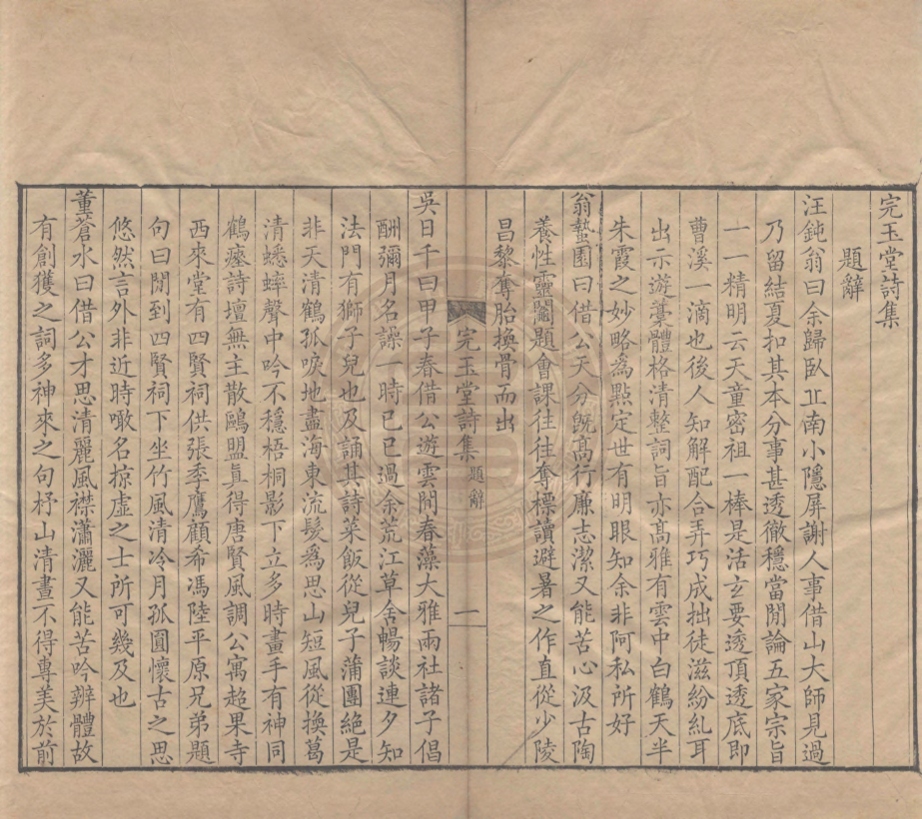 完玉堂詩集
題辭
汪鈍翁曰余歸臥丠南小隱屏謝人事借山大師見過
乃留結夏扣其本分事甚透徹穩當閒論五家宗旨
一一精明云天童密祖一棒是活玄要透頂透底即
曹溪一滴也後人知解配合弄巧成拙徒滋紛糺耳
出示游藁體格清整詞旨亦高雅有雲中白鶴天半
朱霞之妙略爲點定世有明眼知余非阿私所好
翁蟄園曰借公天分旣高行廉志潔又能苦心汲古陶
養性靈閣題會課往往奪標讀避暑之作直從少陵
昌黎奪胎換骨而出
完玉堂詩集 題辭 一
吳日千曰甲子春借公遊雲間春藻大雅兩社諸子倡
酬彌月名譟一時已巳過余荒江草舍暢談連夕知
法門有獅子兒也及誦其詩菜飯從兒子蒲團絶是
非天清鶴孤唳地盡海東流髮爲思山短風從換葛
清蟋蟀聲中吟不穩梧桐影下立多時畫手有神同
鶴瘞詩壇無主散鷗盟眞得唐賢風調公寓超果寺
西來堂有四賢祠供張季鷹顧希馮陸平原兄弟題
句曰閒到四賢祠下坐竹風清冷月孤圓懷古之思
悠然言外非近時噉名掠虛之士所可幾及也
董蒼水曰借公才思清麗風襟瀟灑又能苦吟辨體故
有創獲之詞多神來之句杼山清晝不得專美於前